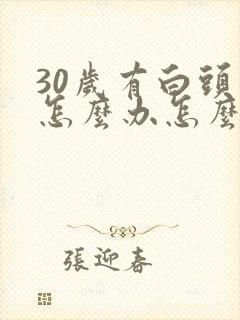 30歲有白頭
怎麼办怎麼
張迎春